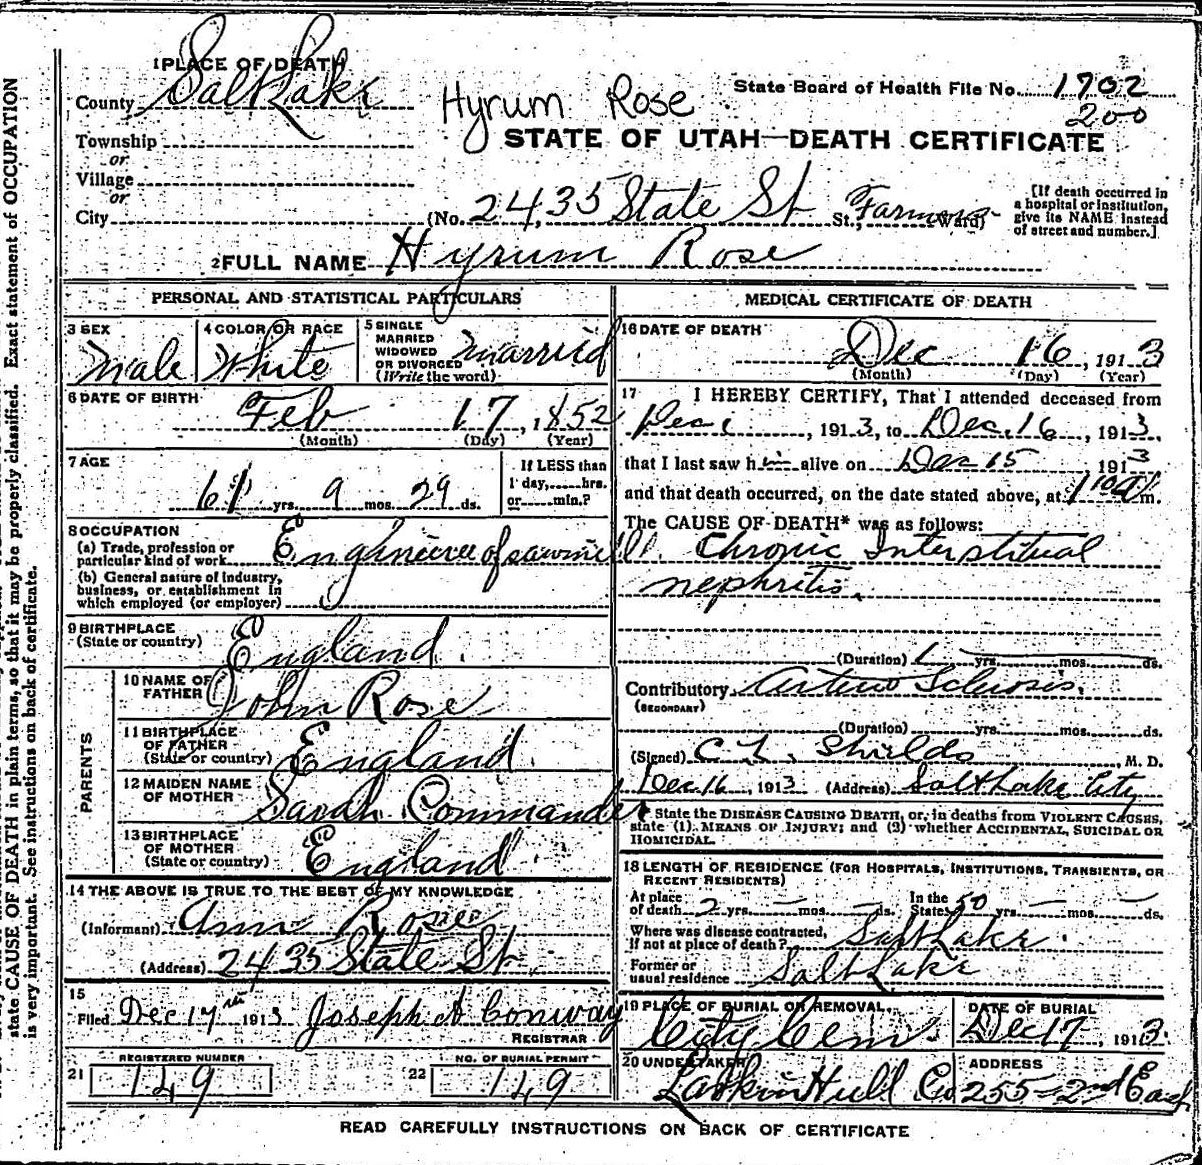 1 PLACE OF DEATH
County Salt Lake
Hyrum Rose
State Board of Health File No. 1702
200
Township
or
Village
or
City
STATE OF UTAH—DEATH CERTIFICATE
(No. 2435 State St St., Farmers Ward)
[If death occurred in
a hospital or institution,
give its NAME instead
of street and number.]
2 FULL NAME Hyrum Rose
PERSONAL AND STATISTICAL PARTICULARS
3 SEX
Male
4 COLOR OR RACE
White
5 SINGLE
MARRIED
WIDOWED
OR DIVORCED
(Write the word)
married
6 DATE OF BIRTH
Feb 17, 1852
(Month) (Day) (Year)
7 AGE
61 yrs. 9 mos. 29 ds.
If LESS than
1 day, hrs.
or min.?
8 OCCUPATION
(a) Trade, profession or
particular kind of work
of sawmill
(b) General nature of industry,
business, or establishment in
which employed (or employer)
9 BIRTHPLACE
(State or country)
England
PARENTS
10 NAME OF
FATHER
John Rose
11 BIRTHPLACE
OF FATHER
(State or country)
England
12 MAIDEN NAME
OF MOTHER
Sarah Commander
13 BIRTHPLACE
OF MOTHER
(State or country)
England
14 THE ABOVE IS TRUE TO THE BEST OF MY KNOWLEDGE
(Informant) Ann Rose
(Address) 2435 State St.
15
Filed Dec 17th 1913 Joseph A Conway
REGISTRAR
REGISTERED NUMBER
21 149
NO. OF BURIAL PERMIT
22 149
MEDICAL CERTIFICATE OF DEATH
16 DATE OF DEATH
Dec 16, 1913
(Month) (Day) (Year)
17 I HEREBY CERTIFY, That I attended deceased from
Dec 1, 1913, to Dec. 16, 1913,
that I last saw him alive on Dec 15 1913
and that death occurred, on the date stated above, at 1 10 a m.
The CAUSE OF DEATH* was as follows:
Chronic Interstitual
nephritis.
(Duration) 1 yrs. mos. ds.
Contributory Arterio Sclerosis,
(SECONDARY)
(Duration) yrs. mos. ds.
(Signed) C. L. Shields, M. D.
Dec 16, 1913 (Address) Salt Lake City
* State the DISEASE CAUSING DEATH, or, in deaths from VIOLENT CAUSES,
state (1) MEANS OF INJURY; and (2) whether ACCIDENTAL, SUICIDAL OR
HOMICIDAL.
18 LENGTH OF RESIDENCE (FOR HOSPITALS, INSTITUTIONS, TRANSIENTS, OR
RECENT RESIDENTS)
At place
of death 2 yrs. — mos. — ds.
In the
State 50 yrs. — mos. — ds.
Where was disease contracted,
if not at place of death? Salt Lake.
Former or
usual residence Salt Lake
19 PLACE OF BURIAL OR REMOVAL
City Cem.
DATE OF BURIAL
Dec 17, 1913.
20 UNDERTAKER
Larkin Hull Co
ADDRESS
255 - 2nd East
READ CAREFULLY INSTRUCTIONS ON BACK OF CERTIFICATE
state CAUSE OF DEATH in plain terms, so that it may be properly classified. Exact statement of OCCUPATION
is very important. See instructions on back of certificate.